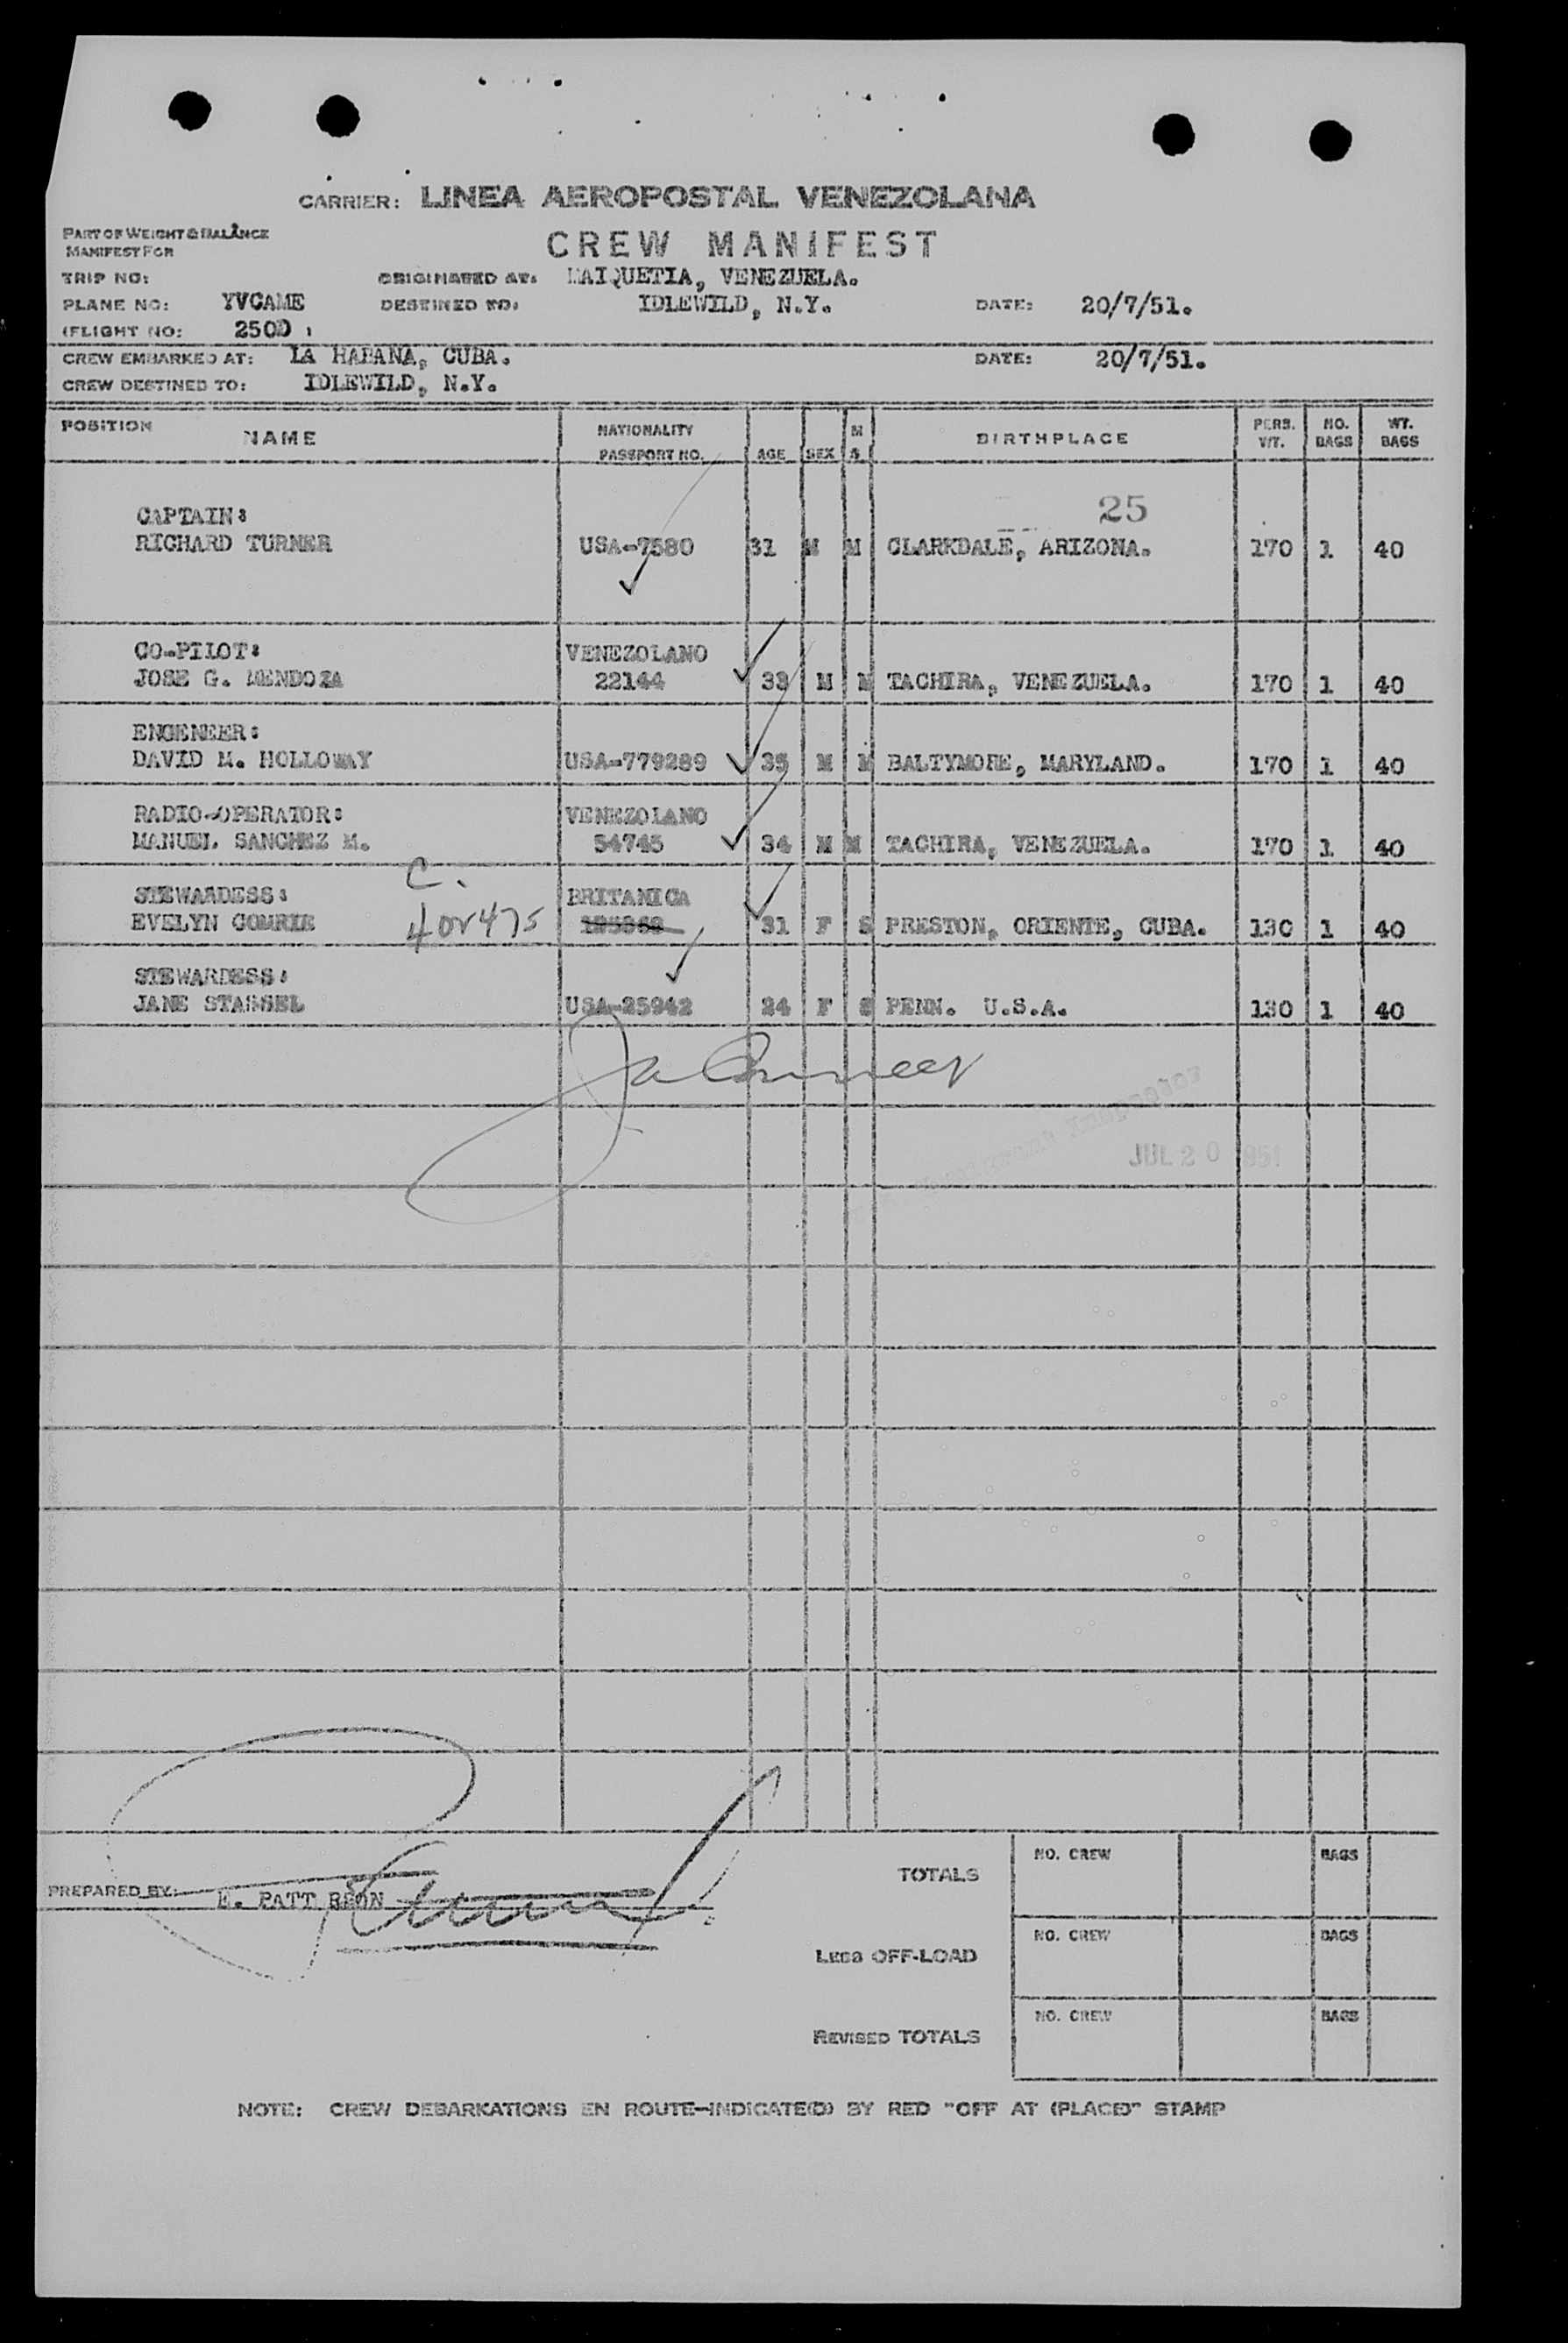 CARRIER: LINEA AEROPOSTAL VENEZOLANA
PART OF WEIGHT & BALANCE
MANIFEST FOR
CREW MANIFEST
TRIP NO: ORIGINATED AT: MAIQUETIA, VENEZUELA.
PLANE NO: YVCAME DESTINED TO: IDLEWILD, N.Y. DATE: 20/7/51.
(FLIGHT NO: 2500
CREW EMBARKED AT: LA HABANA, CUBA. DATE: 20/7/51.
CREW DESTINED TO: IDLEWILD, N.Y.
POSITION NAME NATIONALITY PASSPORT NO. AGE SEX M S. BIRTHPLACE PERS. WT. NO. BAGS WT. BAGS
25
CAPTAIN:
RICHARD TURNER USA-7580 31 M M CLARKDALE, ARIZONA. 170 1 40
CO-PILOT: VENEZOLANO
JOSE G. MENDOZA 22144 33 M M TACHIRA, VENEZUELA. 170 1 40
ENGENEER:
DAVID M. HOLLOWAY USA-779289 35 M M BALTYMORE, MARYLAND. 170 1 40
RADIO-OPERATOR: VENEZOLANO
MANUEL SANCHEZ M. 54745 34 M M TACHIRA, VENEZUELA. 170 1 40
C.
STEWARDESS: BRITANICA
EVELYN GOMRIE 31 F S PRESTON, ORIENTE, CUBA. 130 1 40
STEWARDESS:
JANE STASSEL USA-25942 24 F S PENN. U.S.A. 130 1 40
Immigrant Inspector
JUL 20 1951
TOTALS NO. CREW BAGS
PREPARED BY: E. PATT RSON
LESS OFF-LOAD NO. CREW BAGS
REVISED TOTALS NO. CREW BAGS
NOTE: CREW DEBARKATIONS EN ROUTE-INDICATE(D) BY RED "OFF AT (PLACE)" STAMP